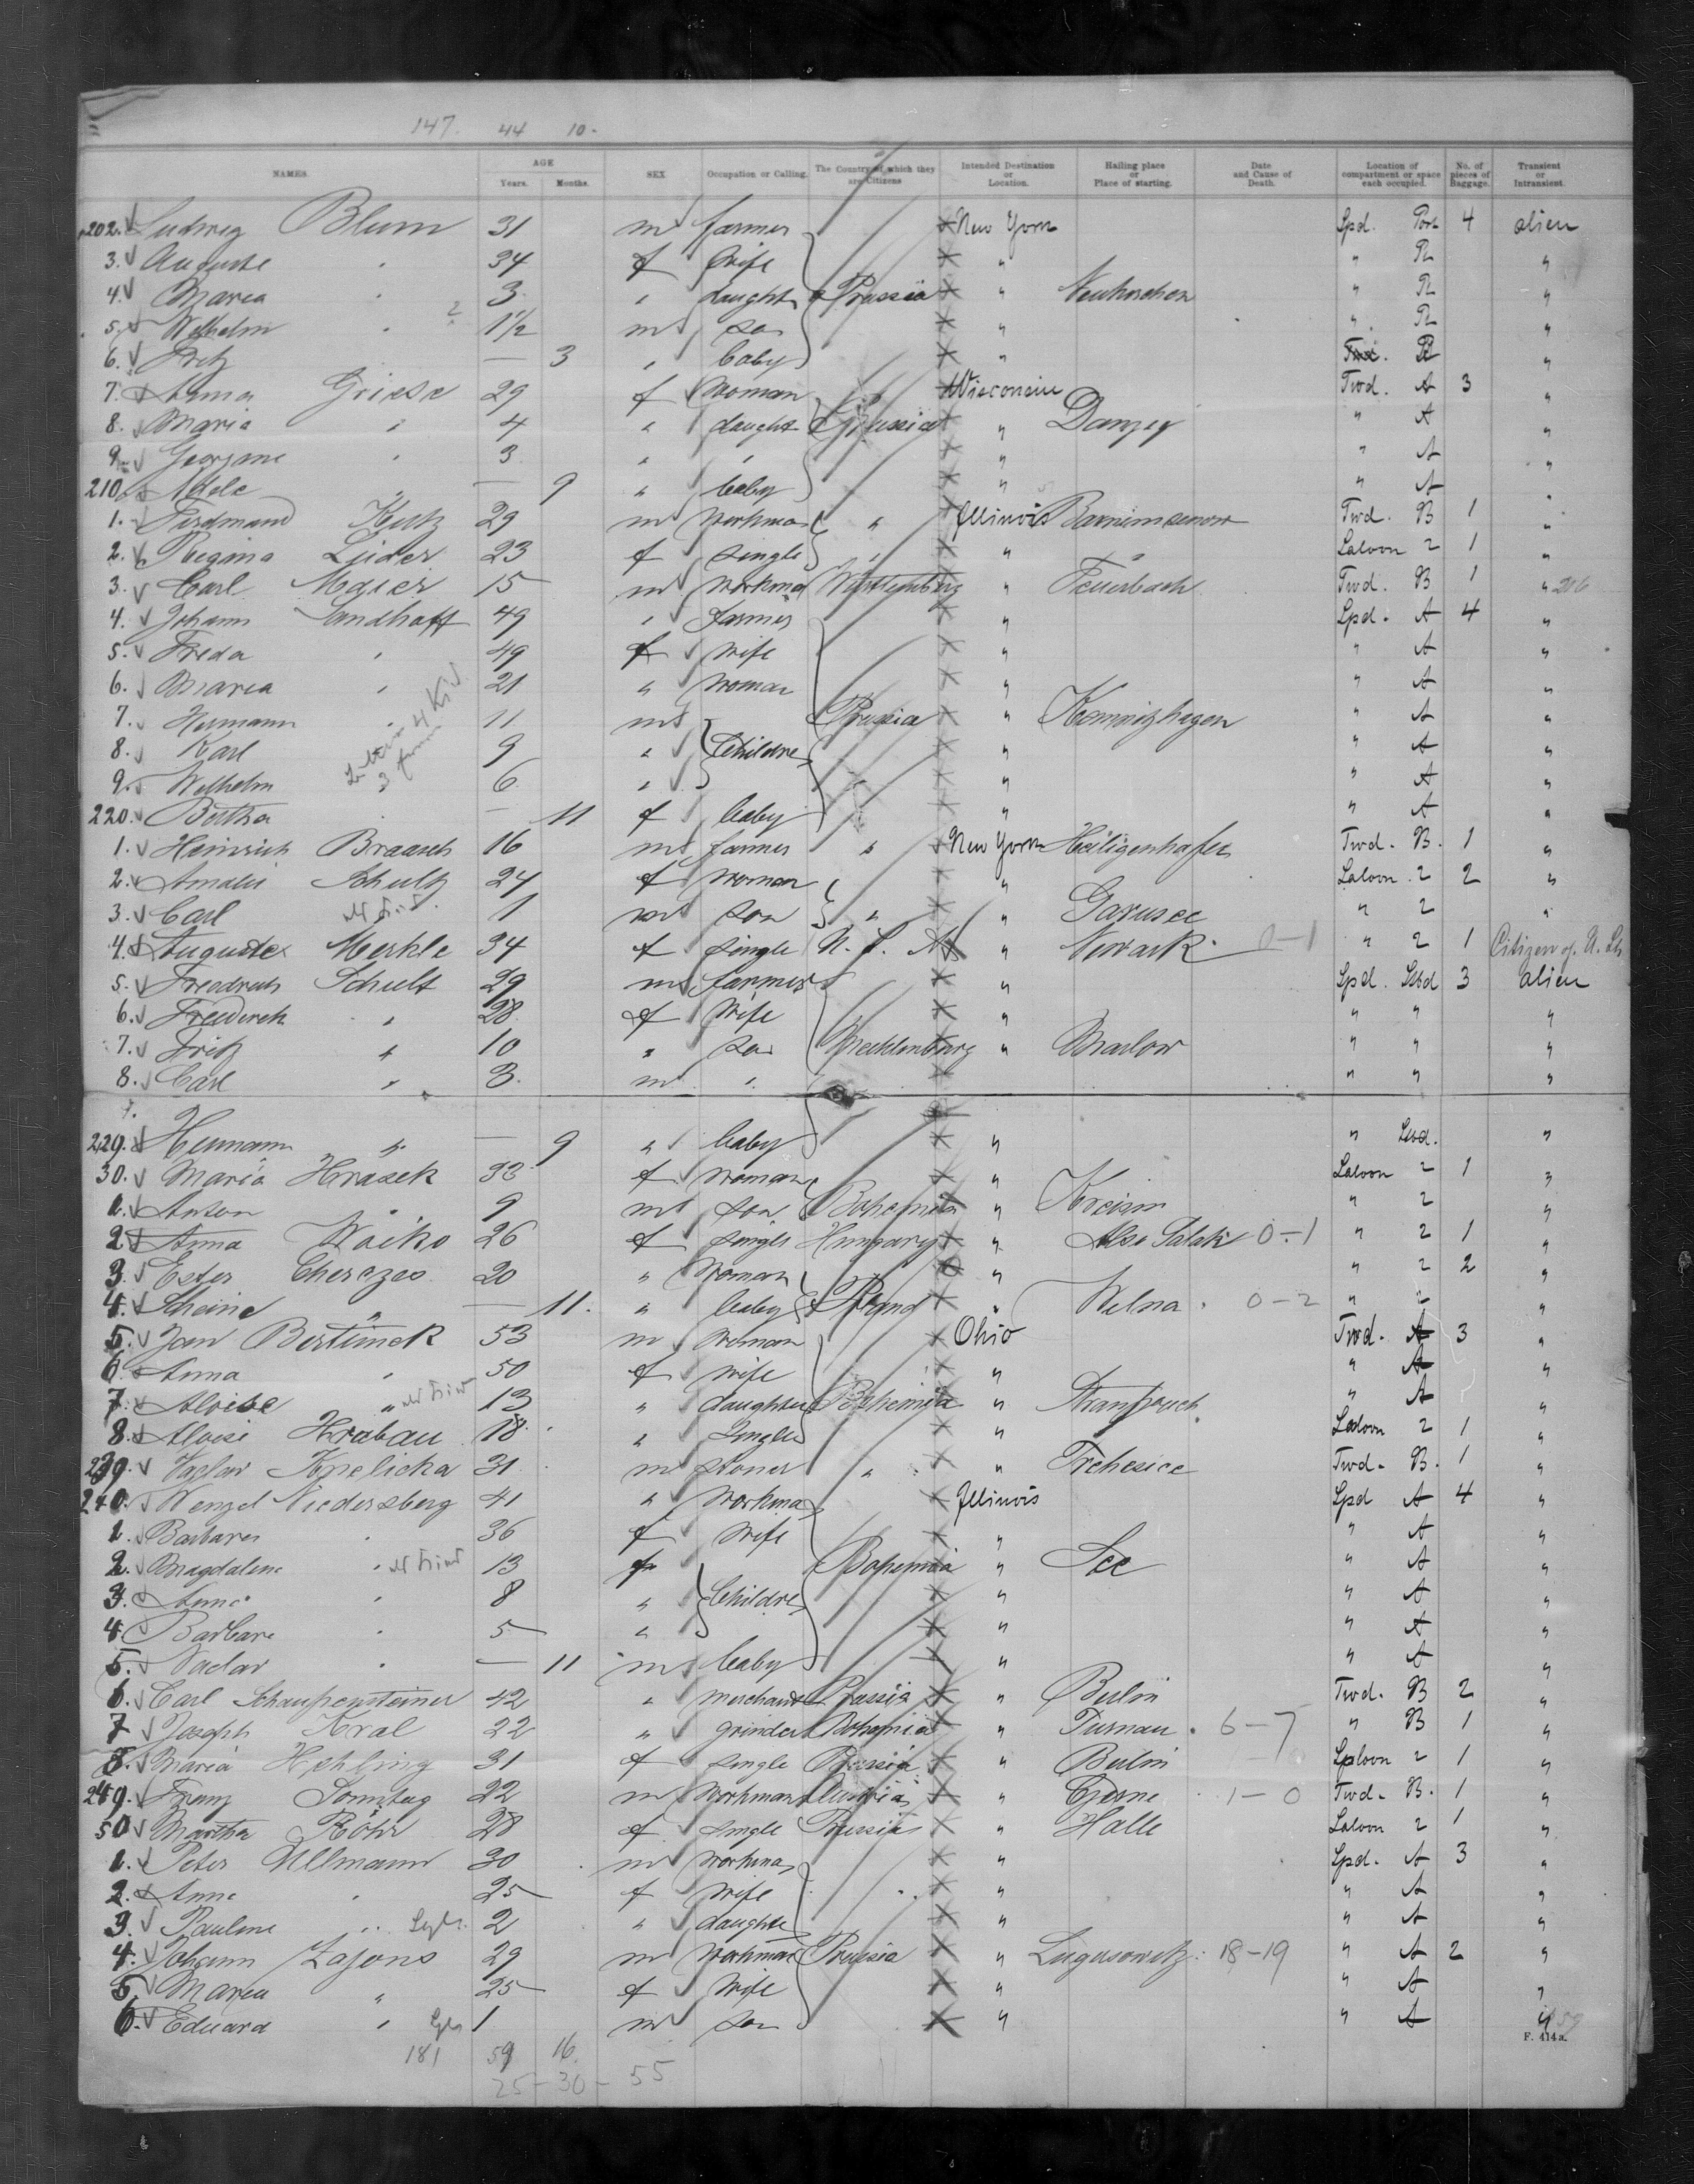 147. 44 10.
NAMES. AGE Years. Months. SEX Occupation or Calling. The Country of which they are Citizens Intended Destination or Location. Hailing place or Place of starting. Date and Cause of Death. Location of compartment or space each occupied. No. of pieces of Baggage. Transient or Intransient.
202. Ludwig Blum 31 m farmer New York Spd. 4 alien
3. Auguste " 34 f wife " " "
4. Maria " 3 " daught Prussia " " "
5. Wilhelm " 1 1/2 m " " "
6. Fritz — 3 " baby " "
7. Anna Griese 29 f woman Wisconsin Twd. A 3 "
8. Maria " 4 " daught Prussia " Danzig " A "
9. " 3 " " " " A "
210. Adele " — 9 " baby " " A "
1. Ferdinand 29 m workma " Illinois Twd. B 1 "
2. Regina Lüder 23 f single " " Saloon 2 1 "
3. Carl Maier 15 m workma Württemberg " Feuerbach Twd. B 1 " 206
4. Johann Sandhoff 49 " farmer " Spd. A 4 "
5. Freda " 49 f wife " " A "
6. Maria " 21 " woman " " A "
7. Hermann " 11 m Prussia " " A "
8. Karl 9 " Childre " " A "
9. Wilhelm " 6 " " " A "
220. Bertha — 11 f baby " " A "
1. Heinrich Braasch 16 m farmer " New York Heiligenhafen Twd. B. 1 "
2. Amalie Schultz 24 f woman " Saloon 2 2 "
3. Carl 1 m son " " Garnsee " 2 "
4. Auguste Merkle 34 f single U. S. A " Newark 0-1 " 2 1 Citizen of U. St.
5. Friedrich Schult 29 m farmer " Spd. Stbd 3 alien
6. " 28 f wife " " " "
7. Fritz " 10 " Mecklenburg " Marlow " " "
8. Carl " 3 m " " " "
229. Hermann " — 9 " baby " " Stbd. "
30. Maria Hrasek 33 f woman " Saloon 2 1 "
1. Anton " 9 m son Bohemia " " 2 "
2. Anna Woiko 26 f single Hungary " 0-1 " 2 1 "
3. Ester 20 " woman " " 2 2 "
4. " — 11. " baby " Wilna 0-2 " "
5. Jan 53 m woman Ohio Twd. A 3 "
6. Anna " 50 f wife " " A "
7. Aloise " 13 " daughter Bohemia " " A "
8. Aloisi Hrabau 18 " single " Saloon 2 1 "
239. Vaclav 31 m " " Twd. B. 1 "
240. Wenzel Niedersberg 41 " workma Illinois Spd A 4 "
1. Barbara " 36 f wife " " A "
2. Magdalena " 13 f Bohemia " See " A "
3. Anna " 8 " Childre " " A "
4. Barbara " 5 " " " A "
5. Vaclav " — 11 m baby " " A "
6. Carl 42 " merchant Prussia " Berlin Twd. B 2 "
7 Joseph Kral 22 " grinder Bohemia " Turnau 6-7 " B 1 "
8. Maria Hehling 31 f single Prussia " Berlin Saloon 2 1 "
249. Franz Sonntag 22 m workman Austria " 1-0 Twd. B. 1 "
50 Martha Röhr 28 f single Prussia " Halle Saloon 2 1 "
1. Peter Ullmann 30 m workma " Spd. A 3 "
2. Anna " 25 f wife " " A "
3. Pauline " 2 " daughte " " A "
4. Johann Zajons 29 m workman Prussia " 18-19 " A 2 "
5. Maria " 25 f wife " " A "
6. Eduard " 1 m " " A "
F. 414a.
181 59 16.
25-30-55